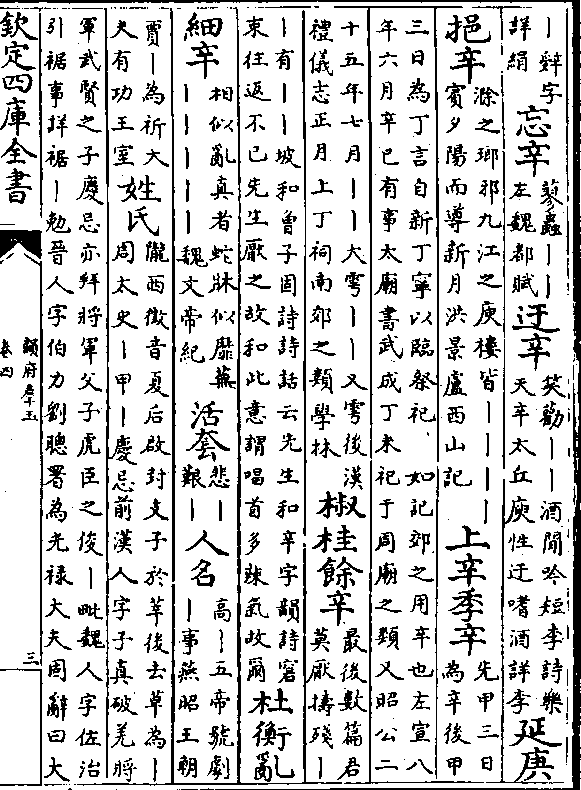 ｜辤字
詳絹
忘辛
蓼蟲｜｜
左魏都賦
迂辛
笑勸｜｜酒閒吟短李詩樂
天辛太丘庾性迂嗜酒詳李
延庚
挹辛
滁之瑯邪九江之庾樓皆｜｜｜｜
賓夕陽而導新月洪景盧西山記
上辛季辛
先甲三日
為辛後甲
三日為丁言自新丁寧以臨祭祀、如記郊之用辛也左宣八
年六月辛巳有事太廟書武成丁未祀于周廟之類又昭公二
十五年七月｜｜大雩｜｜又雩後漢
禮儀志正月上丁祠南郊之類學林
椒桂餘辛
最後數篇君
莫厭擣殘｜
｜有｜｜坡和曾子固詩詩話云先生和辛字韻詩窘
束往返不已先生厭之故和此意謂唱首多辣氣故爾
杜衡亂
細辛
相似亂真者蛇牀似蘼蕪
｜｜｜｜｜魏文帝紀
活套
悲｜
艱｜
人名
高｜五帝號劇
｜事燕昭王朝
賈｜為祈大
夫有功王室
姓氏
隴西徵音夏后啟封支子於莘後去草為｜
周太史｜甲｜慶忌前漢人字子真破羌將
軍武賢之子慶忌亦拜將軍父子虎臣之俊｜毗魏人字佐治
引裾事詳裾｜勉晉人字伯力劉聰署為光禄大夫固辭曰大
欽定四庫全書
韻府羣玉
卷四
三